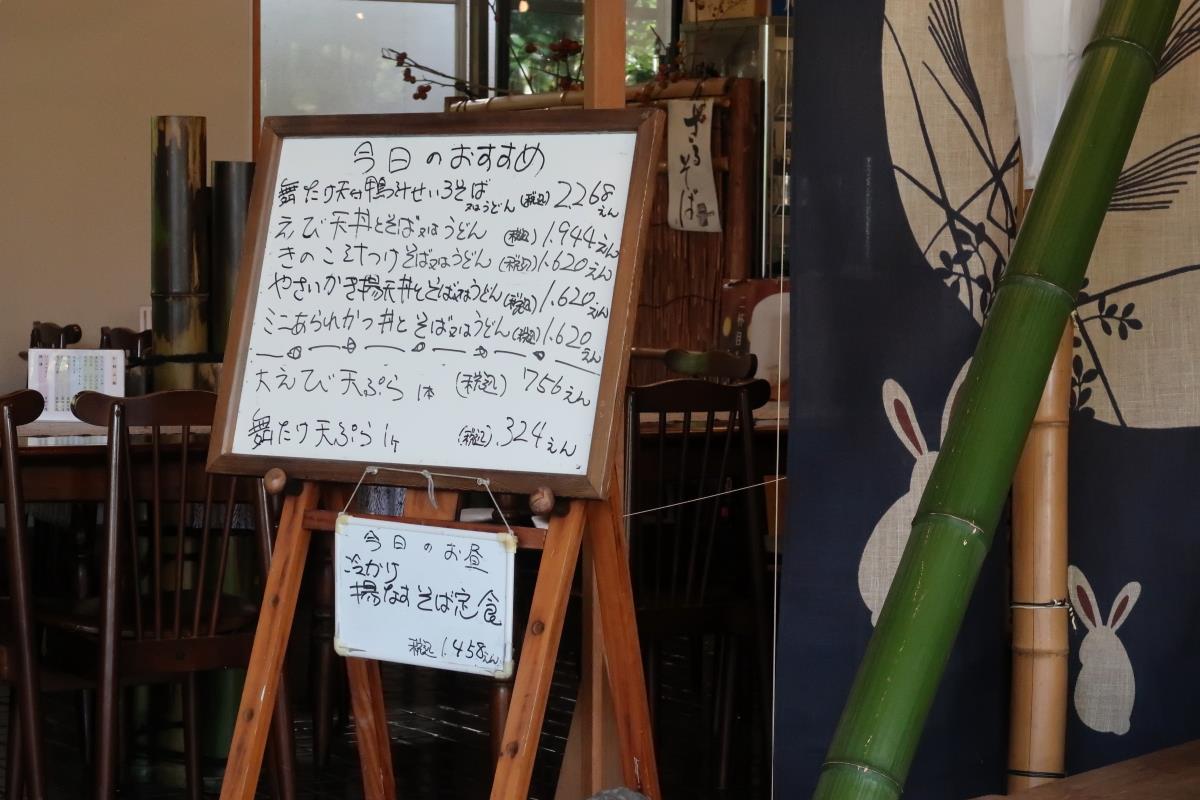 今日のおすすめ
舞たけ天付鴨汁せいろそば又はうどん(税込)2.268えん
えび天丼とそば又はうどん(税込)1.944えん
きのこ汁つけそば又はうどん(税込)1.620えん
やさいかき揚天丼とそば又はうどん(税込)1.620えん
ミニあられかつ丼とそば又はうどん(税込)1.620えん
大えび天ぷら1本(税込)756えん
舞たけ天ぷら1ヶ(税込)324えん
今日のお昼
冷かけ
揚なすそば定食
税込1.458えん
ざるそば